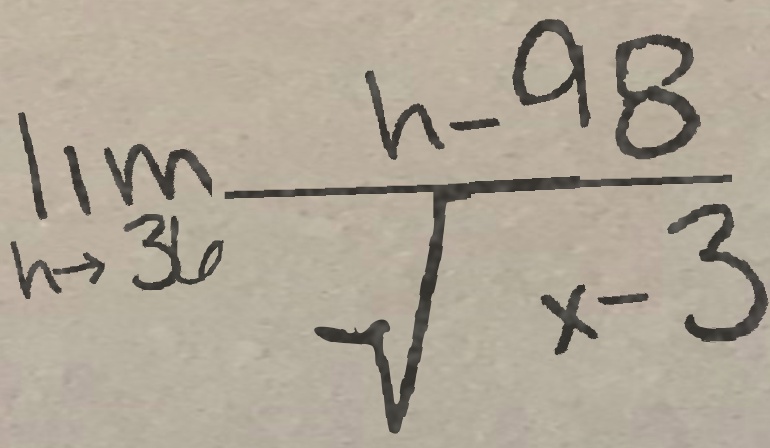 \lim_{h \to 36} \frac{h-98}{\sqrt{x-3}}